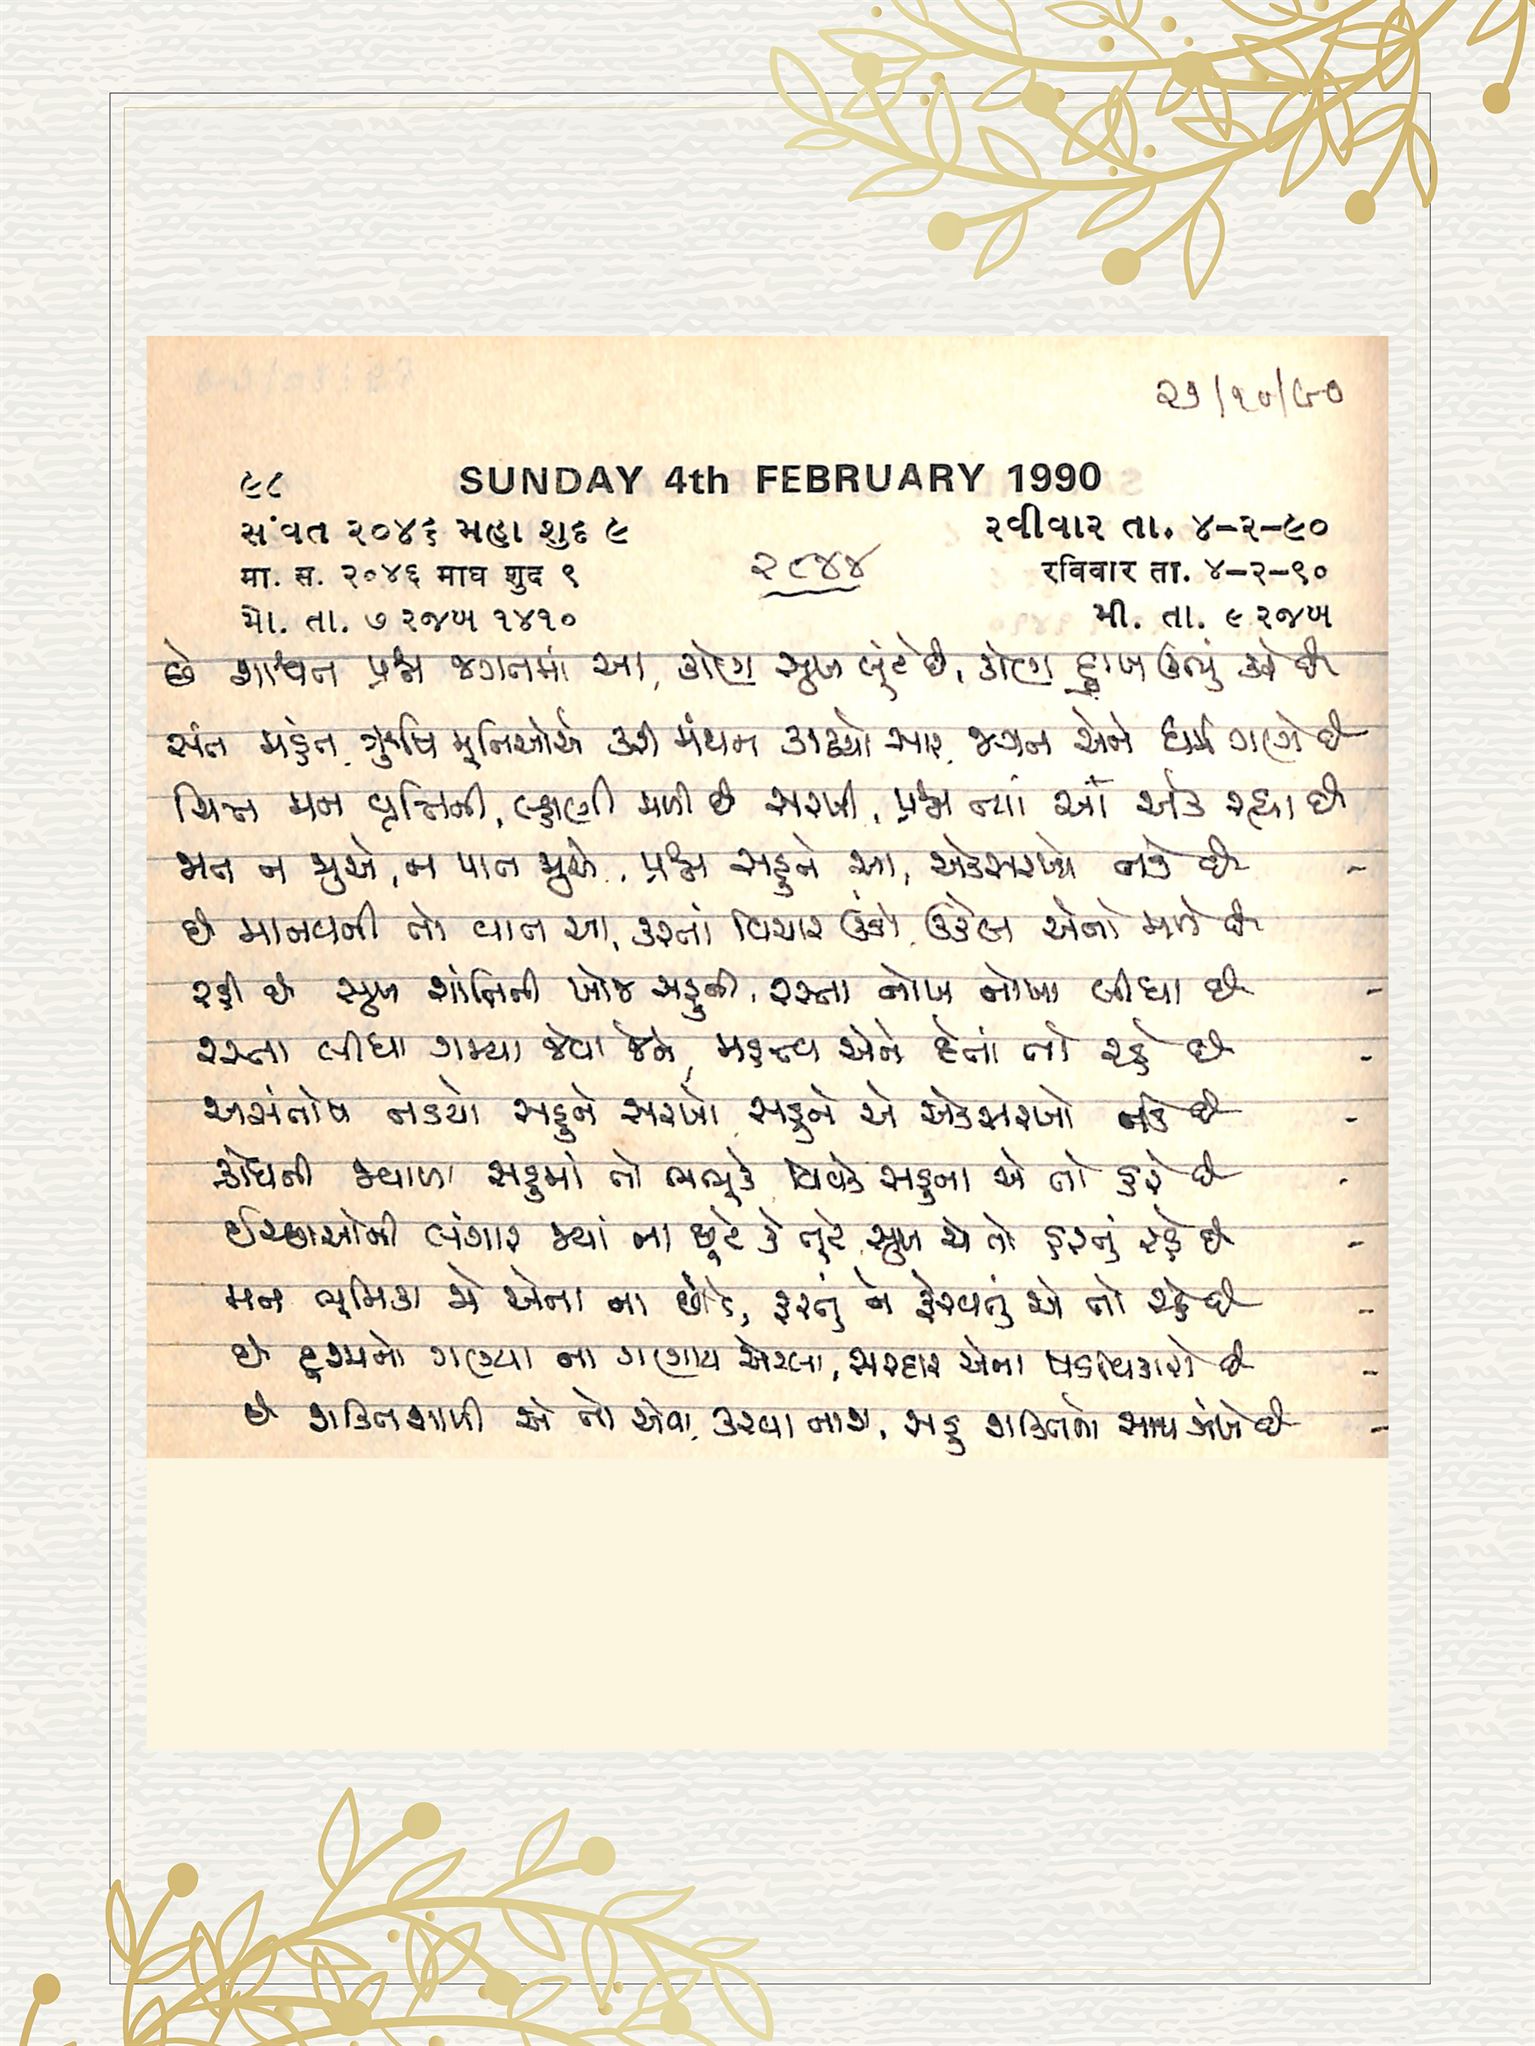 ૨૭/૧૦/૯૦
૯૮ SUNDAY 4th FEBRUARY 1990
સંવત ૨૦૪૬ મહા શુદ ૯ રવીવાર તા. ૪-૨-૯૦
मा. स. २०४६ माघ शुद ९ रविवार ता. ४-२-९०
મો. તા. ૭ રજબ ૧૪૧૦ મી. તા. ૯ રજબ
૨૮૪૪
છે શાશ્વત પ્રશ્ન જગતમાં આ, કોણ સુખ લૂંટે છે, કોણ દુઃખ ઊભું કરે છે
સંત મહંત ઋષિ મૂનિઓએ કરી મંથન કાઢયો સાર જગત એને ધર્મ ગણે છે
ચિત્ત મન વૃત્તિની, લ્હાણી મળી છે સરખી, પ્રશ્ન ત્યાં આ એક રહ્યા છે
જાત ન જુએ, ન પાત જુએ, પ્રશ્ન સહુને આ, એકસરખો નડે છે
છે માનવની તો વાત આ, કરતાં વિચાર ઊંડો ઉકેલ એનો મળે છે
રહી છે સુખ શાંતિની ખોજ સહુની, રસ્તા નોખ નોખા લીધા છે
રસ્તા લીધા ગમ્યા જેવા જેને, મહત્ત્વ એને દેતાં તો રહે છે
અસંતોષ નડયો સહુને સરખો, સહુને એ એકસરખો નડે છે
ક્રોધની જ્વાળા સહુમાં તો ભભૂકે વિવેક સહુના એ તો હરે છે
ઈચ્છાઓની લંગાર જ્યાં ના છૂટે કે તૂટે સુખ એ તો હરતું રહે છે
મન ભૂમિકા જે એના ના છોડે, ફરતું ને ફેરવતું એ તો રહે છે
છે દુશ્મનો ગણ્યા ના ગણાય એટલા, સરદાર એના ષડવિકારો છે
છે શક્તિશાળી એ તો એવા, કરવા નાશ, સહુ શક્તિનો સાથ ઝંખે છે